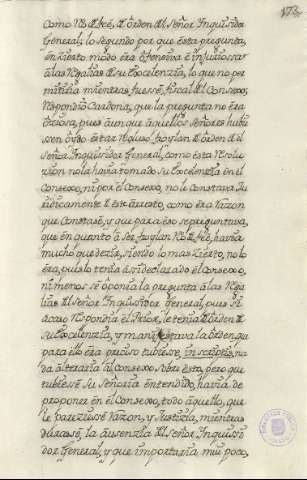 173
como Reo de feé, de órden del Señor Inquisidor
General; lo segundo por que ésta pregunta,
en cierto modo éra ofensiva é injuriosa
á las Regalias de su Excelencia, lo que no per
mitiria mientras fuesse fiscal del Consexo,
Respondio Cardona, que la pregunta no éra
óciosa, pues aunque aquellos Señores hubie
ssen óydo éstar Recluso froylan de órden del
Señor Inquisidor General, como ésta Resolu
zion no la havia tomado su Excelencia en el
consexo, ni por el consexo, no le constava Ju
ridicamente de éste arresto, como éra razon
que constase, y que para éso se preguntava,
que en quanto á Ser froylan Reo de feé, havia
mucho que dezir, siendo lo mas zierto, no lo
éra, pues lo tenia assi declarado él consexo,
ni menos se óponia la pregunta á las Rega
lias del Señor Inquisidor General, pues si
acaso Respondia el Prior, le tenia de órden de
su Excelencia, y manifestava la órden que
para ello éra preciso tubiese, in scriptis, na
da alteraria al consexo sobre ésto, pero que
tubiesse Su Señoria entendido, havia de
proponer en el Consexo, todo aquello, que
le pareziesse razon, y Justizia, mientras
durasse, la ausenzia del Señor Inquisi
dor General, y que importaria mui poco,